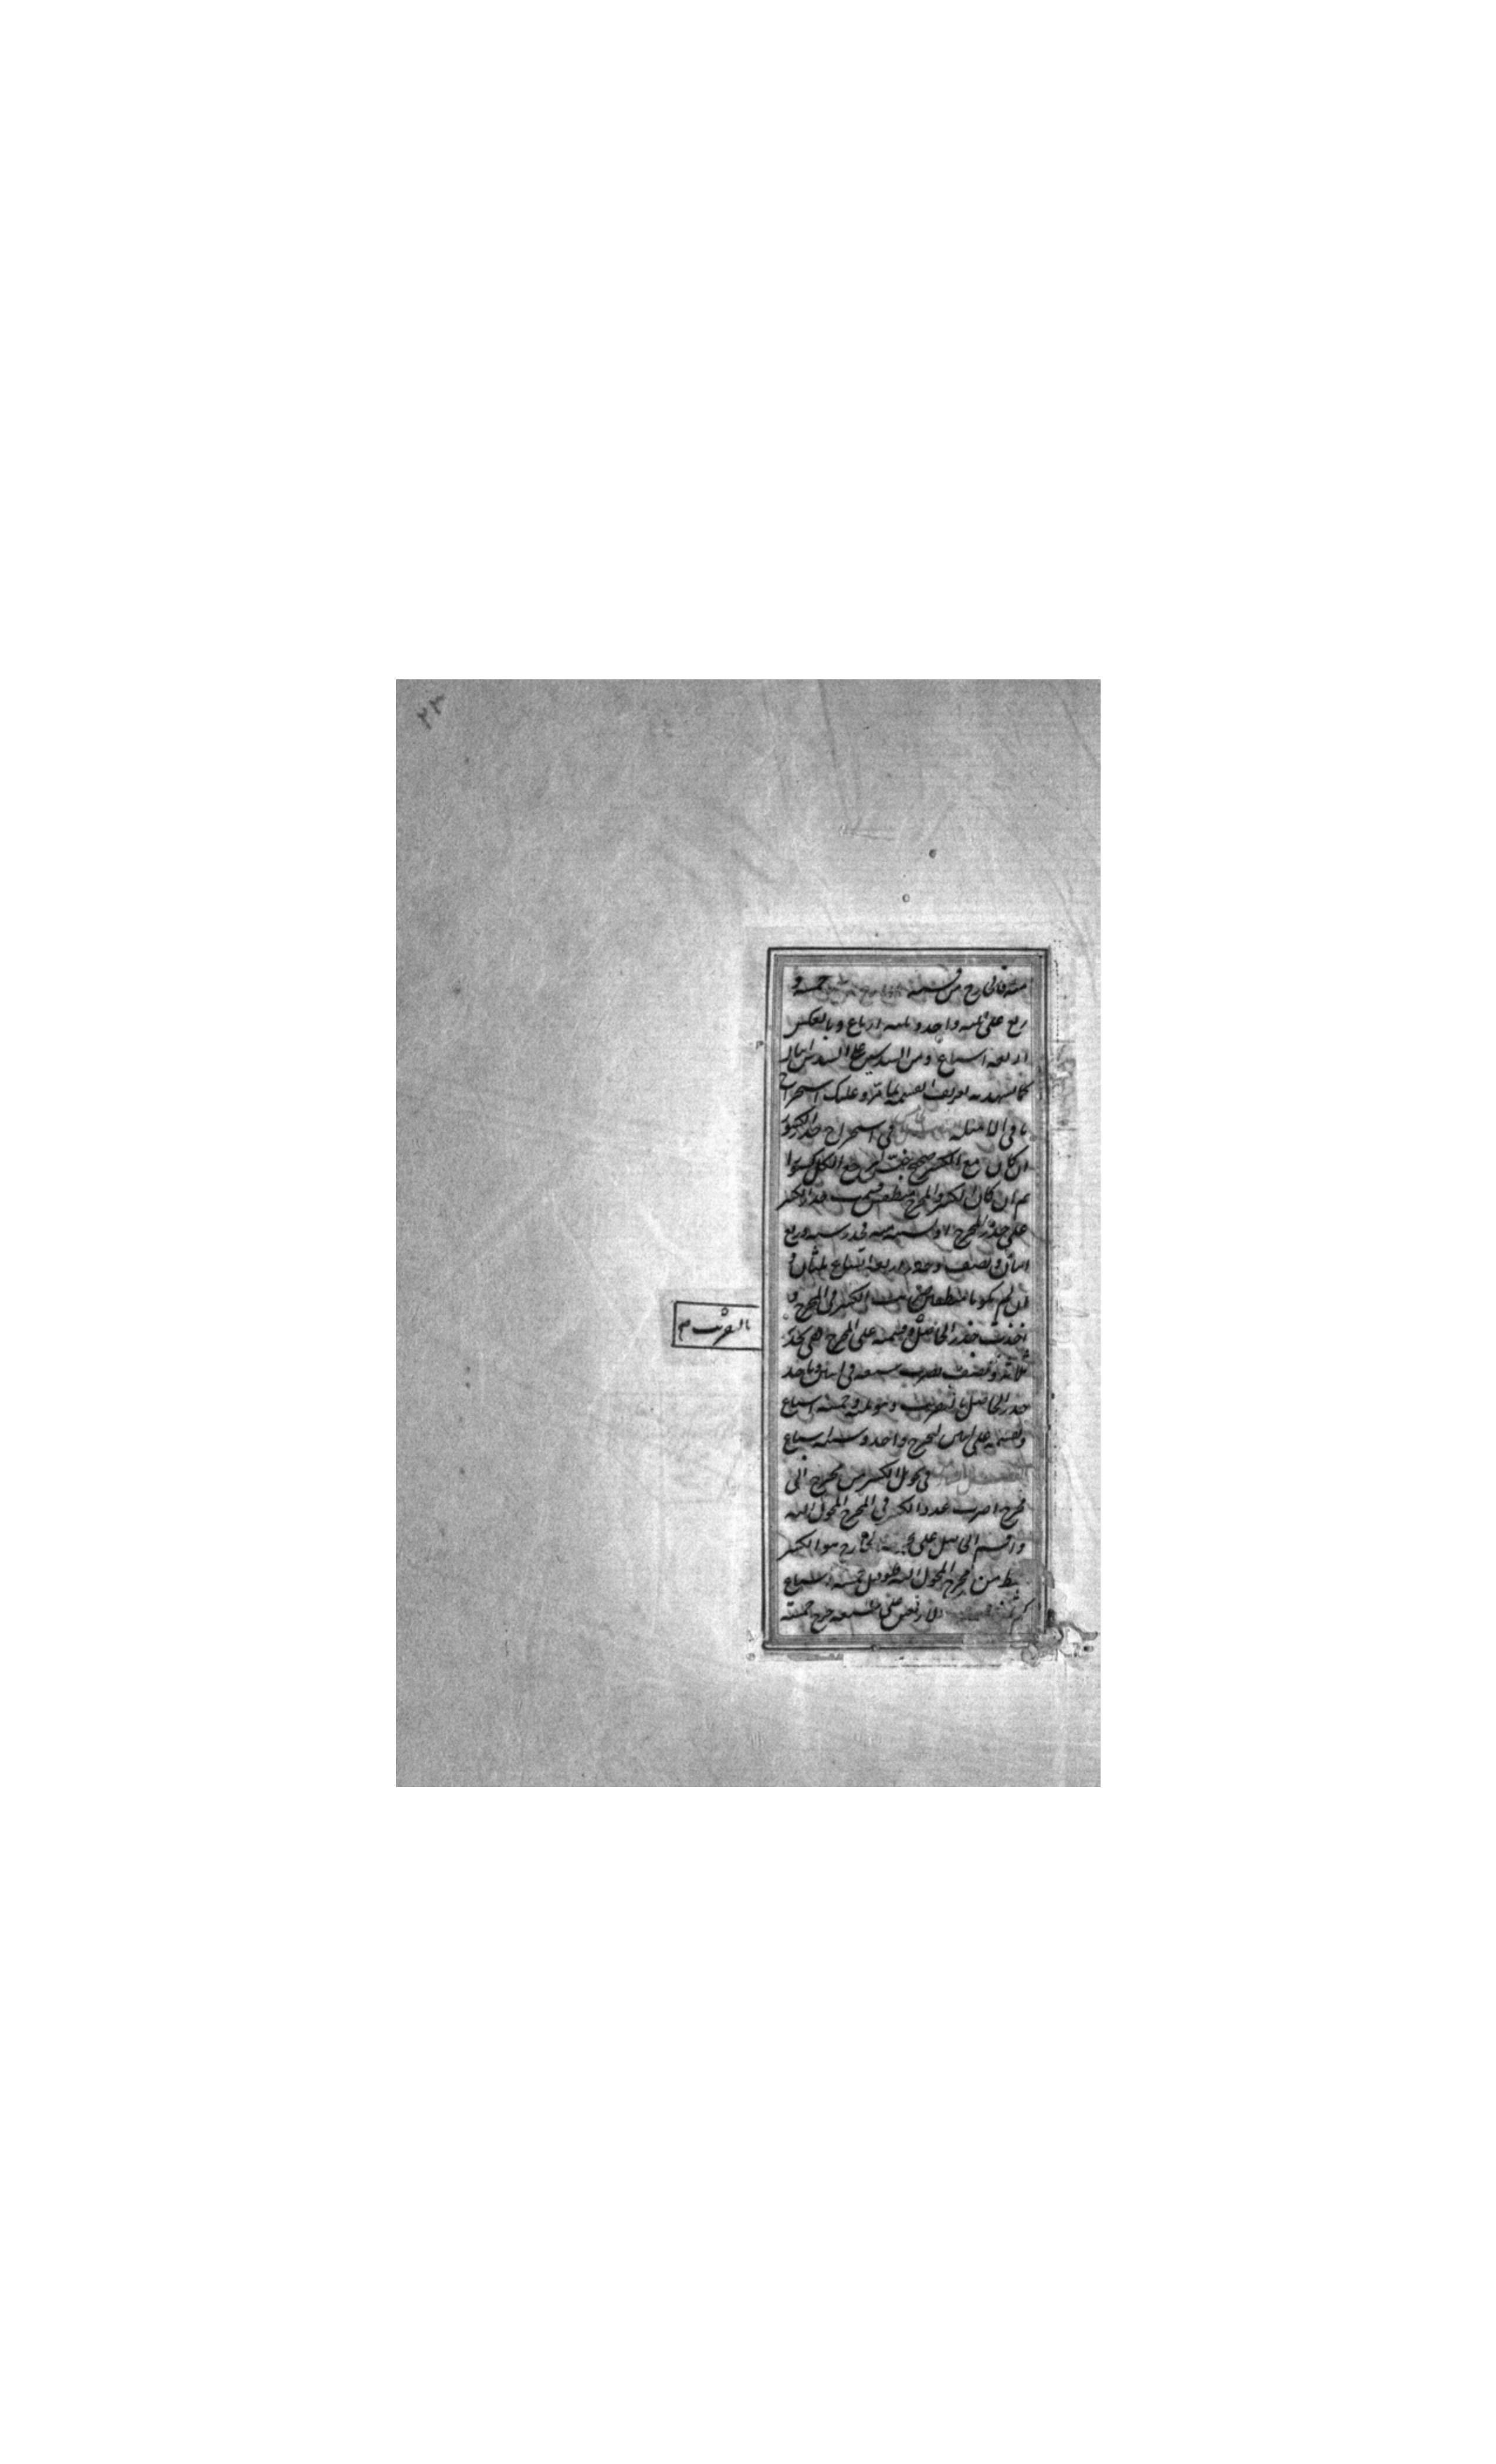 ٢٣
منه فالخارج من قسمة خمسة و
ربع على ثلثه واحد وثلثه ارباع وبالعكس
اربعه اسباع ومن السدسين على السدس اثنان
كما يشهد به تعريف القسمة بما مر وعليك استخراج
باقى الامثله فى استخراج جذر الكسور
ان كان مع الكسر صحيح جنس ليرجع الكل كسورا
ثم ان كان الكسر والمخرج منطقين قسمت جذر الكسر
على جذر المخرج فجذر سته وربع
اثنان ونصف وجذر اربعه اتساع ثلثان و
ان لم يكونا منطقين ضربت الكسر فى المخرج و
اخذت جذر الحاصل وقسمته على المخرج ففى تجذير
ثلاثة ونصف تضرب سبعه فى اثنين وتاخذ
جذر الحاصل بالتقريب وهو ثلثه وخمسه اسباع
وتقسمه على اثنين المخرج واحد وسته اسباع
فى تحويل الكسر من مخرج الى
مخرج اضرب عدد الكسر فى المخرج المحول اليه
واقسم الحاصل على الخارج هو الكسر
من المخرج المحول اليه فلو قيل خمسه اسباع
كم على سبعه خرج خمسة
بالتقريب م